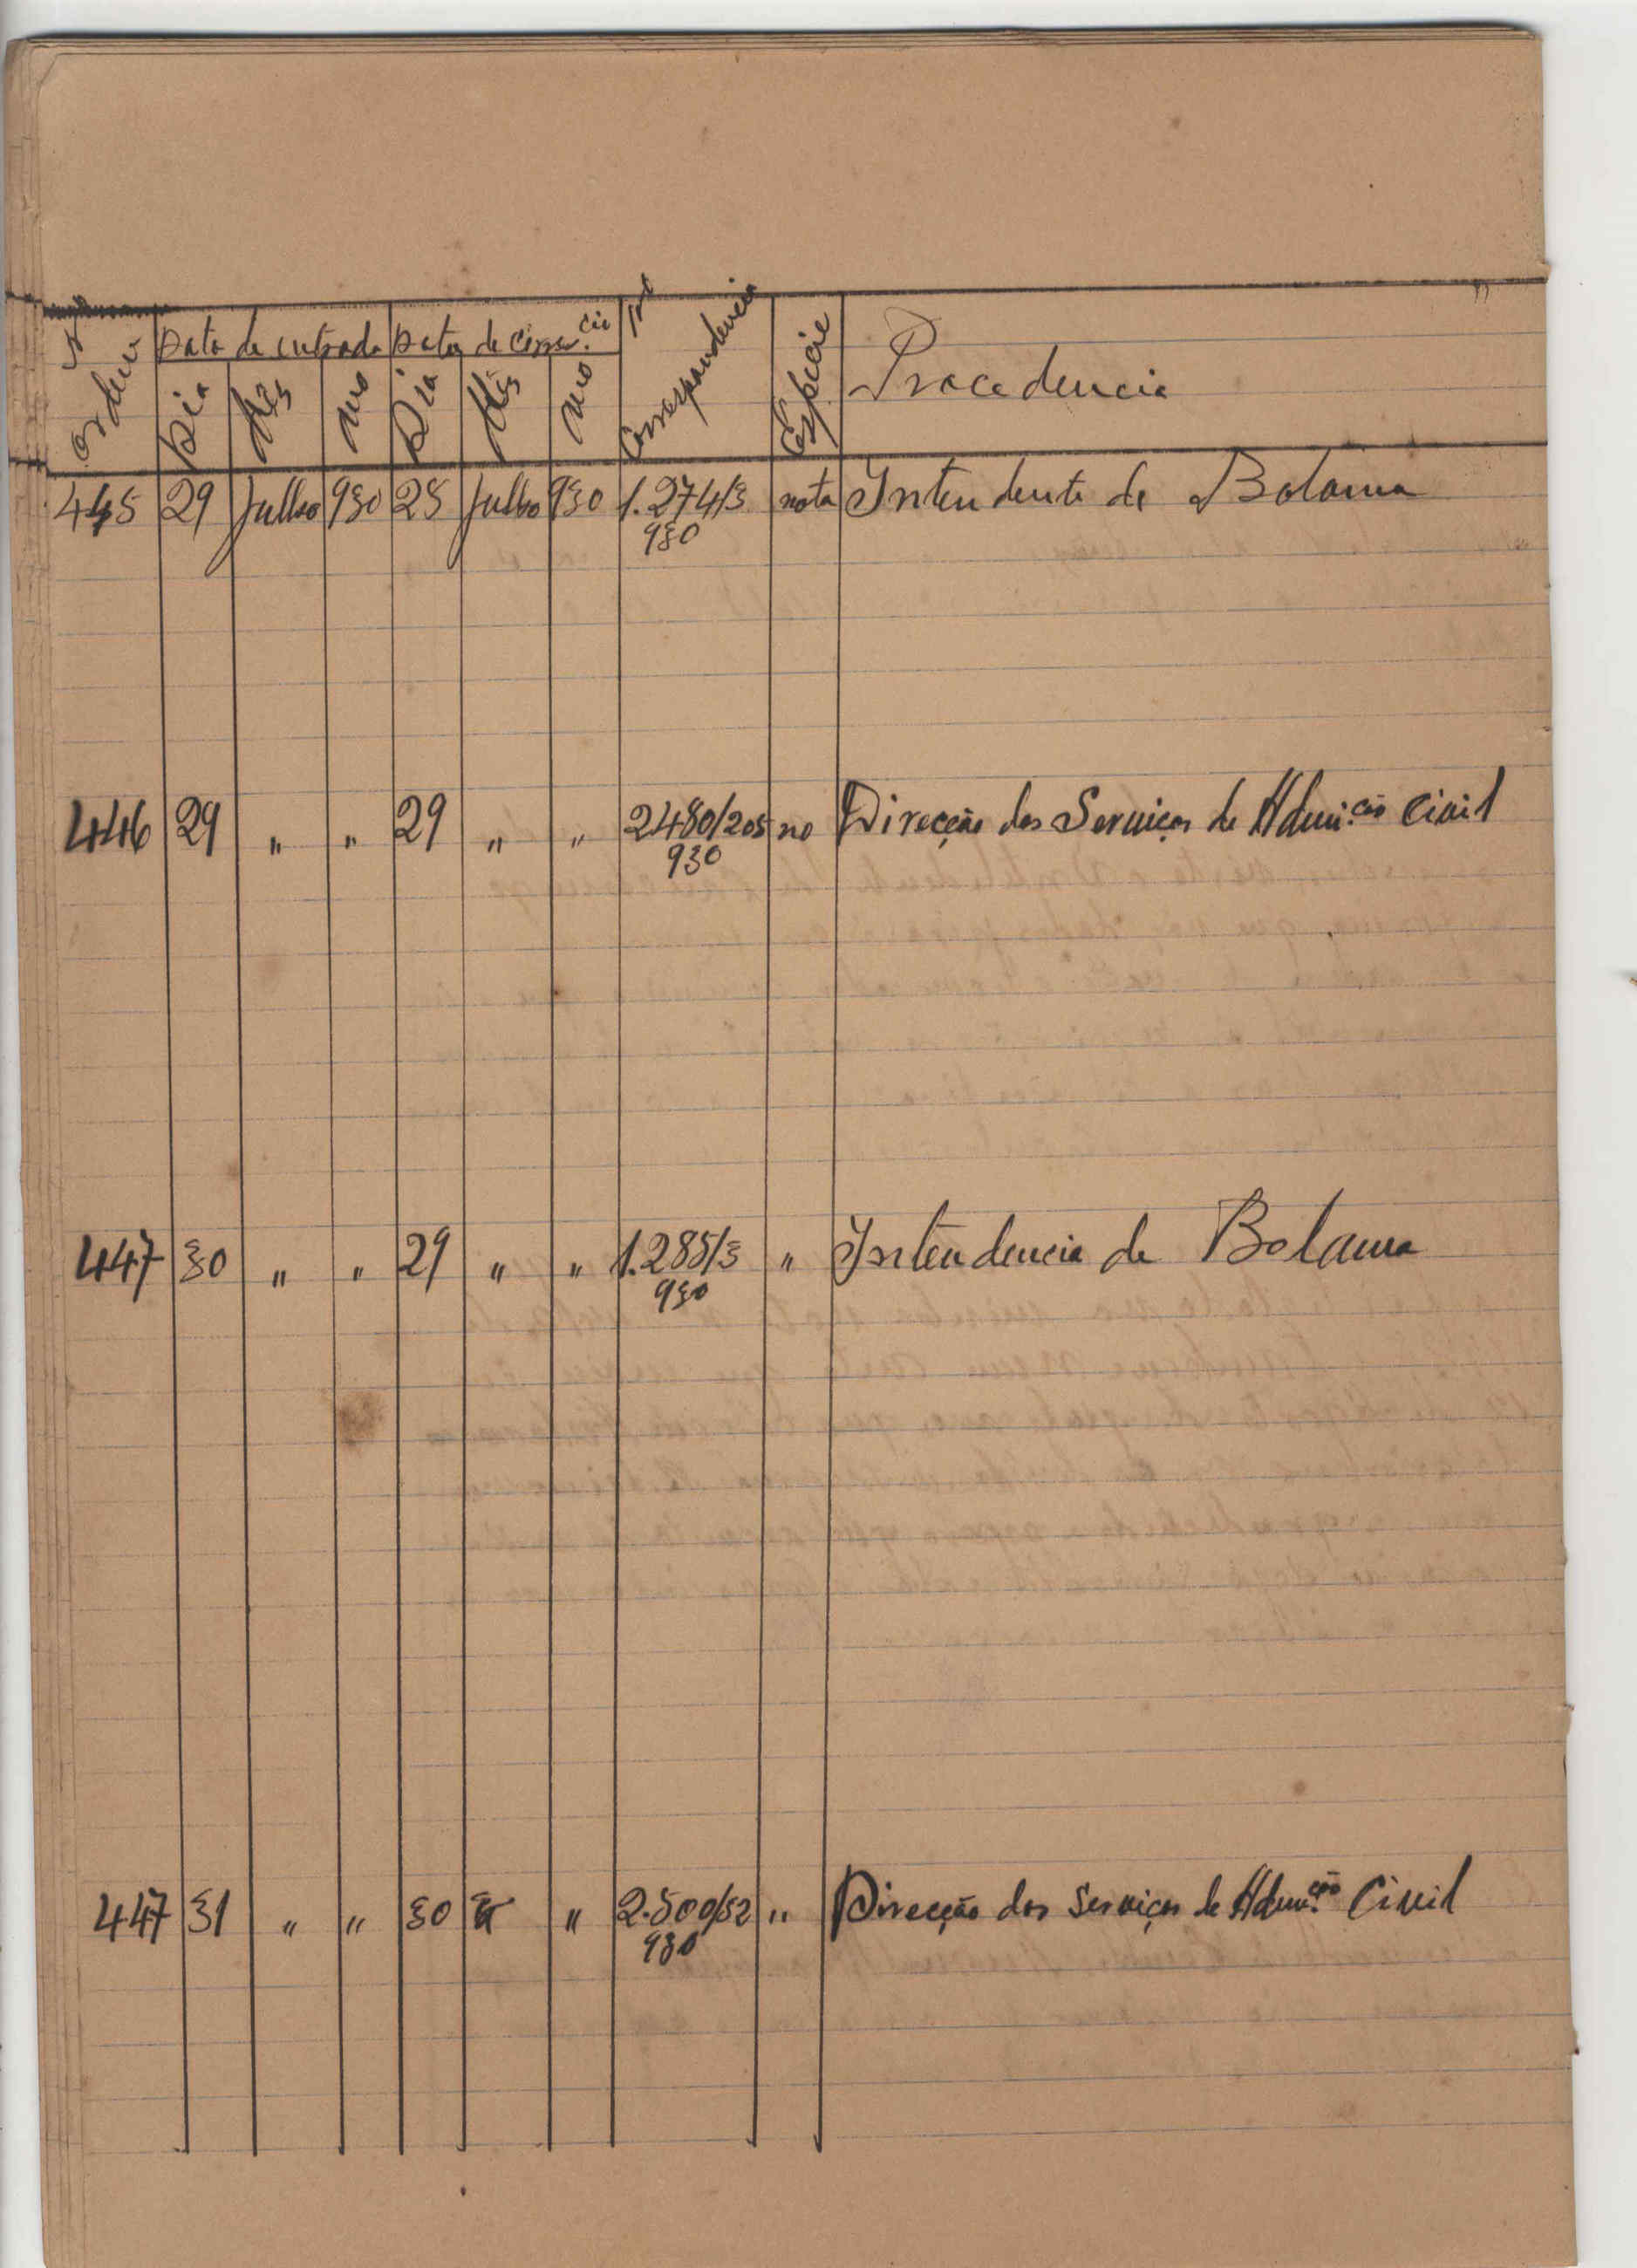 Nº Ordem | Data de entrada | Data de corres.cia | Nº Correspondencia | Especie | Procedencia
Dia | Mês | Ano | Dia | Mês | Ano
445 | 29 | Julho | 930 | 25 | Julho | 930 | 1.274/3 | nota | Intendente de Bolama
930
446 | 29 | " | " | 29 | " | " | 2480/205 | no | Direcção dos Serviços de Admi.ção Civil
930
447 | 30 | " | " | 29 | " | " | 1.285/3 | " | Intendencia de Bolama
930
447 | 31 | " | " | 30 | " | 2.500/52 | " | Direcção dos Serviços de Adm.ção Civil
930